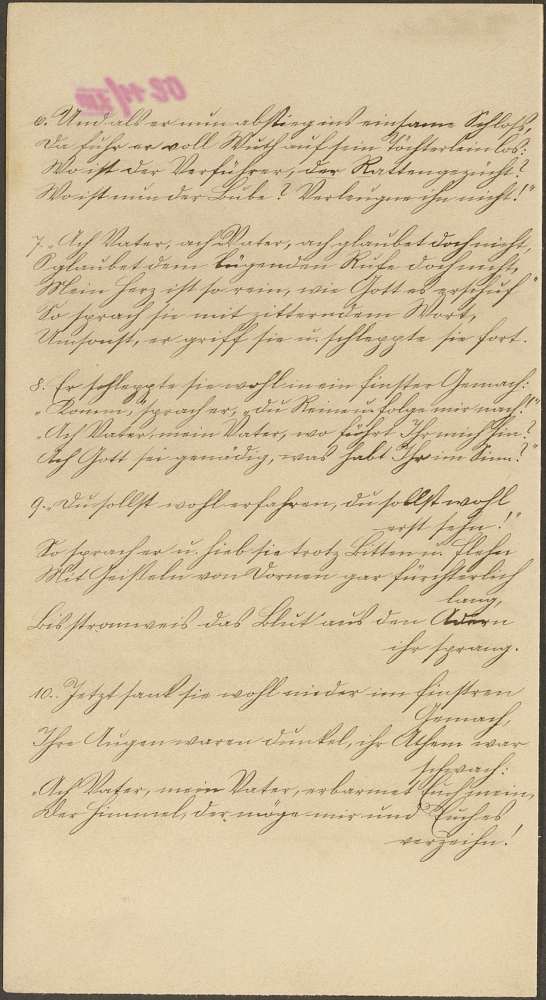 6. Und als er nun abstieg ins einsame Schloß,
Da fuhr er voll Wuth auf sein Töchterlein los:
Wo ist der Verführer, der Rattengezücht?
Wo ist nun der Bube? Verleugne ihn nicht!"
7. „Ach Vater, ach Vater, ach glaubet doch nicht,
O glaubet dem lügenden Rufe doch nicht,
Mein Herz ist so rein, wie Gott es erschuf"
So sprach sie mit zitterndem Wort,
Umsonst, er griff sie u. schleppte sie fort.
8. Er schleppte sie wohl in ein finster Gemach:
„Komm," sprach er, „du Reine u. folge mir nach!"
„Ach Vater, mein Vater, wo führt Ihr mich hin?
Ach Gott sei gnädig, was habt Ihr im Sinn?"
9. „Du sollst wohl erfahren, du sollst wohl
erst sehn!"
So sprach er u. hieb sie trotz Bitten u. Flehn
Mit Geißeln von Dornen gar fürchterlich
lang,
Bis stromweis das Blut aus den Adern
ihr sprang.
10. Jetzt sank sie wohl nieder im finstren
Gemach,
Ihre Augen waren dunkel, ihr Athem war
schwach:
„Ach Vater, mein Vater, erbarmet Euch mein,
Der Himmel, der möge mir und Euch es
verzeihn!